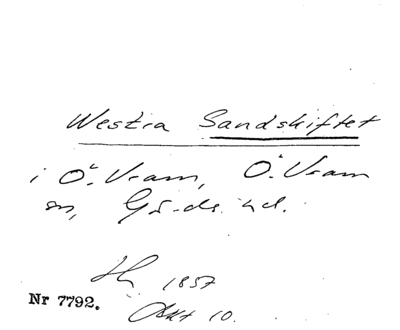 Westra Sandskiftet
i Ö. Vram, Ö. Vram
sn, Gärds hd.
1857
Nr 7792. Akt 10.